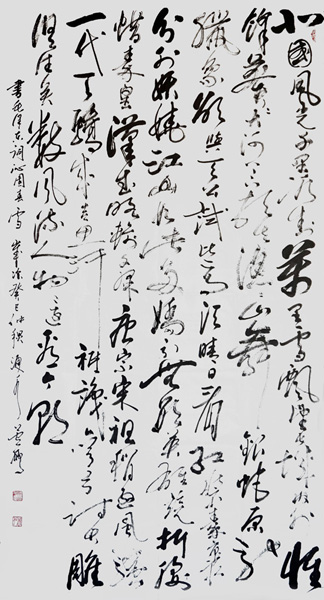 北國風光千里冰封萬里雪飄望長城內外惟
餘莽莽大河上下頓失滔滔山舞銀蛇原馳
蠟象欲與天公試比高須晴日看紅裝素裹
分外妖嬈江山如此多嬌引無數英雄競折腰
惜秦皇漢武略輸文采唐宗宋祖稍遜風騷
一代天驕成吉思汗祇識彎弓射大雕
俱往矣數風流人物還看今朝
書毛澤東詞沁園春雪 癸巳仲秋